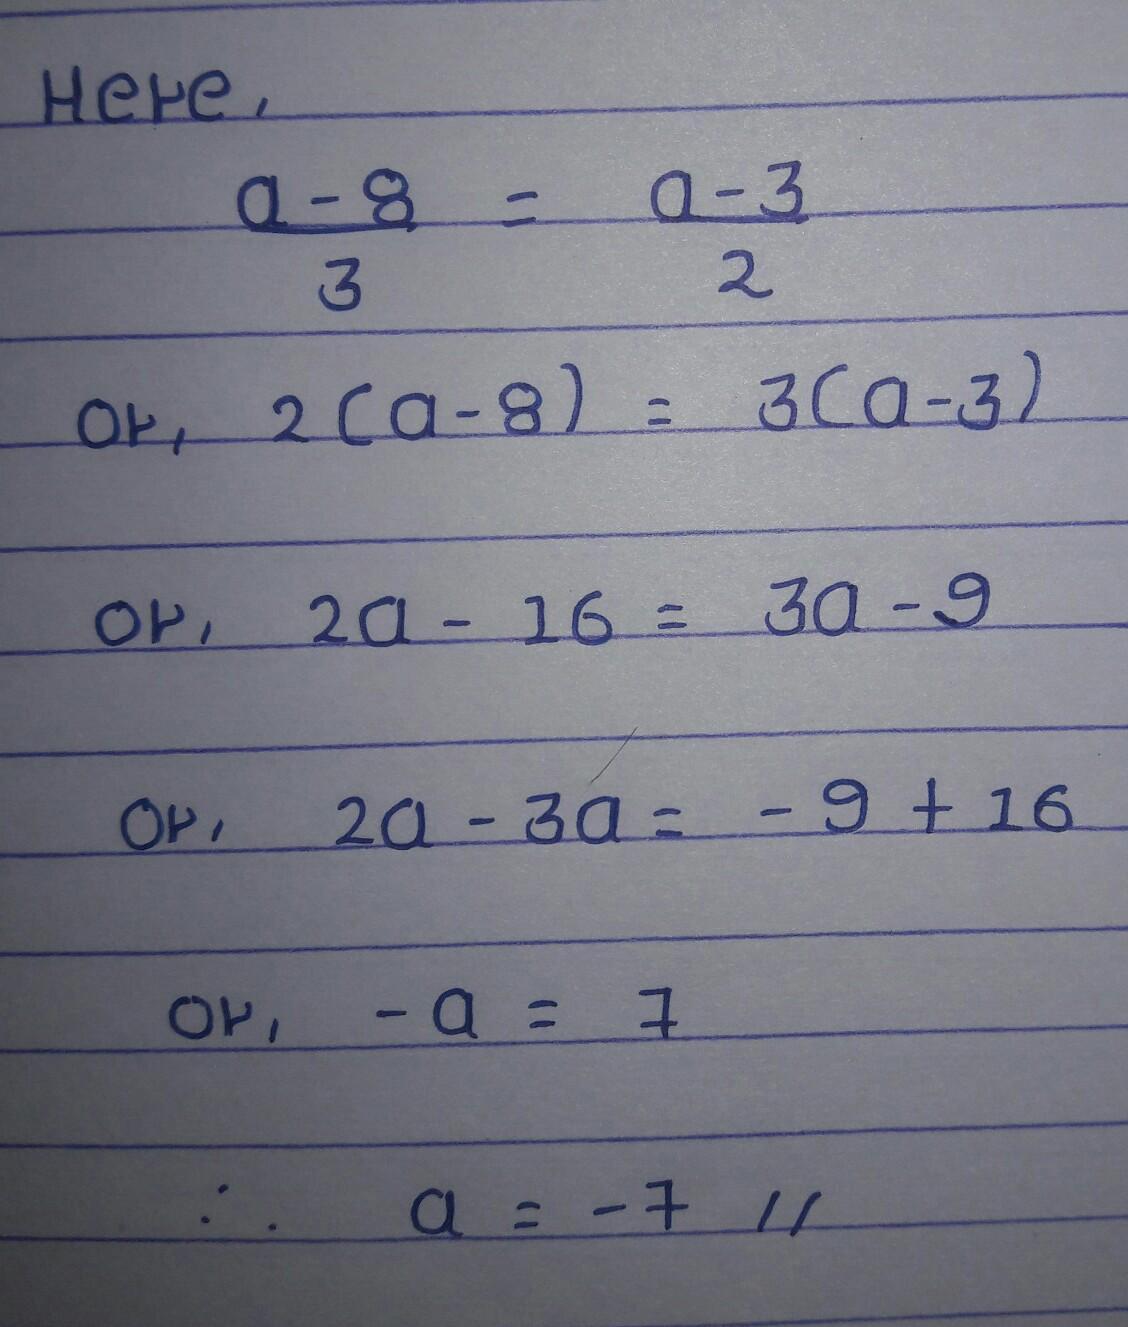 Here,
a-8/3 = a-3/2
or, 2(a-8) = 3(a-3)
or, 2a - 16 = 3a - 9
or, 2a - 3a = - 9 + 16
or, -a = 7
∴ a = -7 //